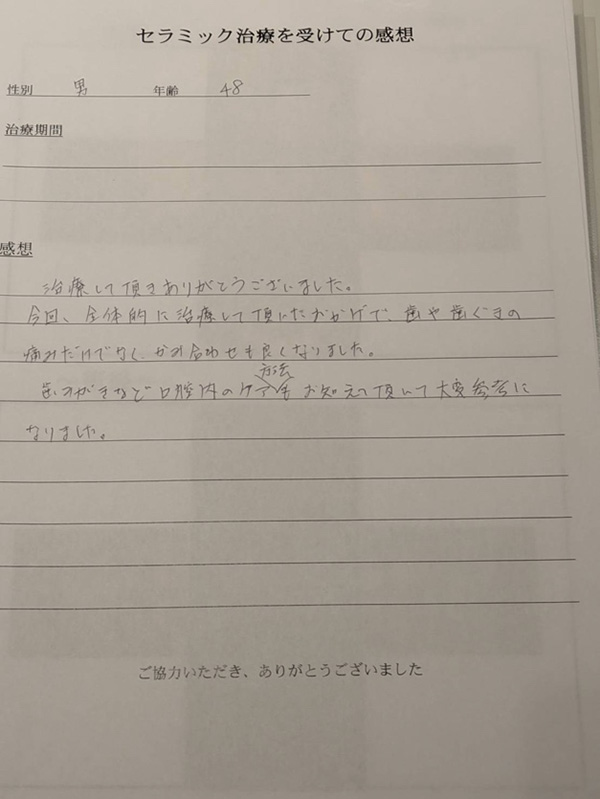 セラミック治療を受けての感想
性別 男 年齢 48
治療期間
感想
治療して頂きありがとうございました。
今回、全体的に治療して頂いたおかげで、歯や歯ぐきの
痛みだけでなく、かみ合わせも良くなりました。
方法
歯みがきなど口腔内のケアも お知えて頂いて大変参考に
なりました。
ご協力いただき、ありがとうございました